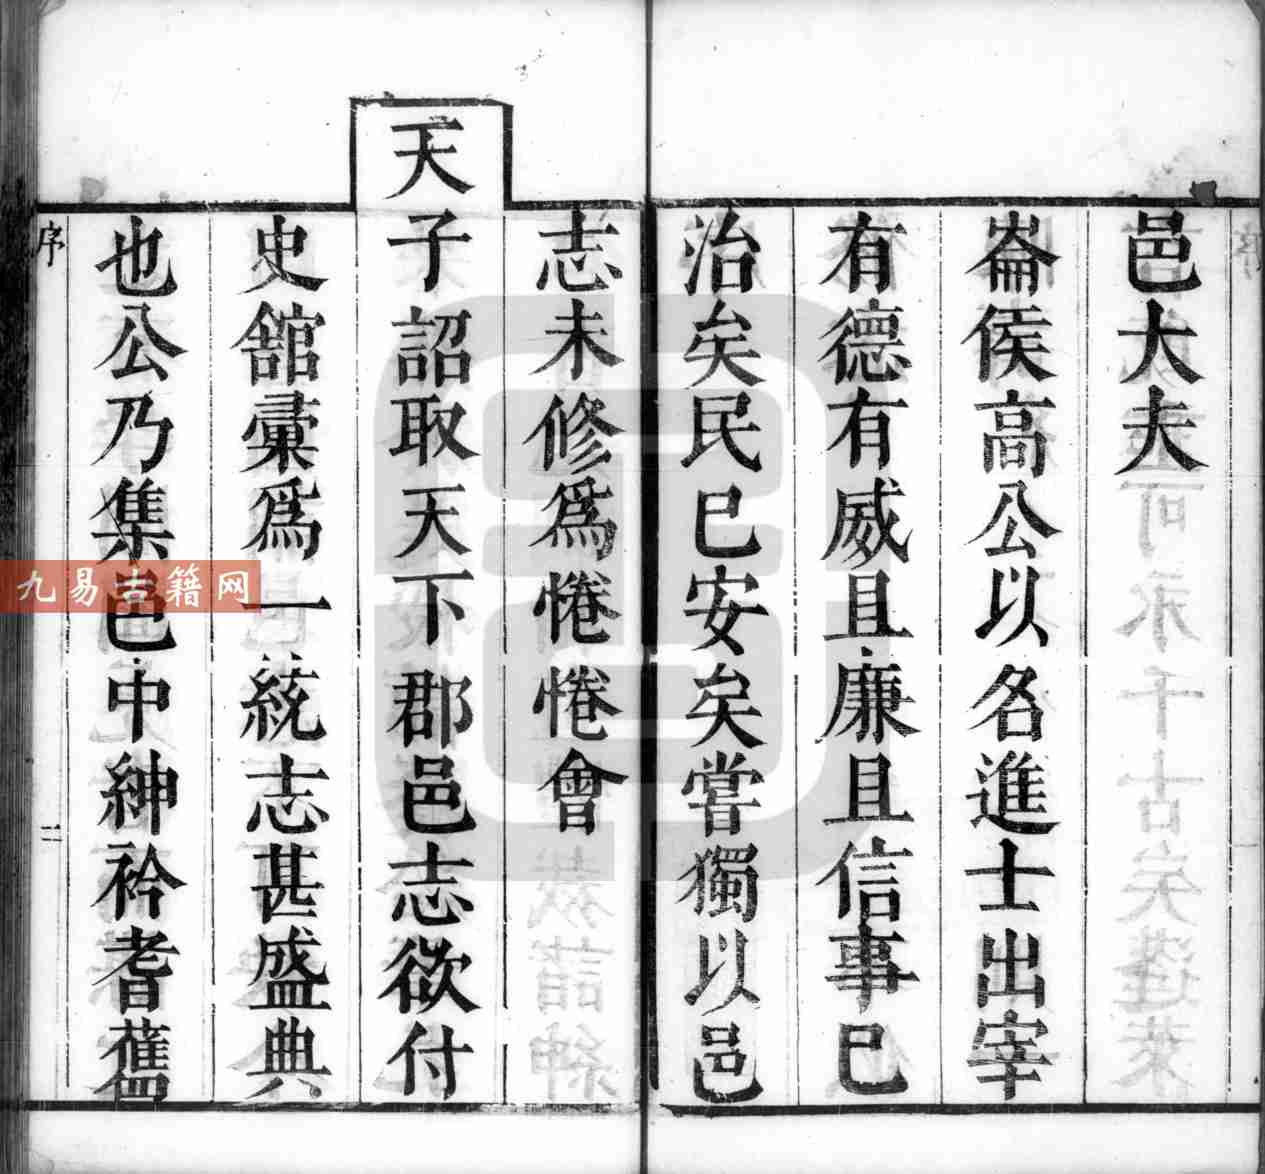 邑大夫
崙侯高公以名進士出宰
有德有威且廉且信事已
治矣民已安矣嘗獨以邑
志未修爲惓惓會
天子詔取天下郡邑志欲付
史舘彚爲一統志甚盛典
也公乃集邑中紳衿耆舊
序
二
九易古籍网